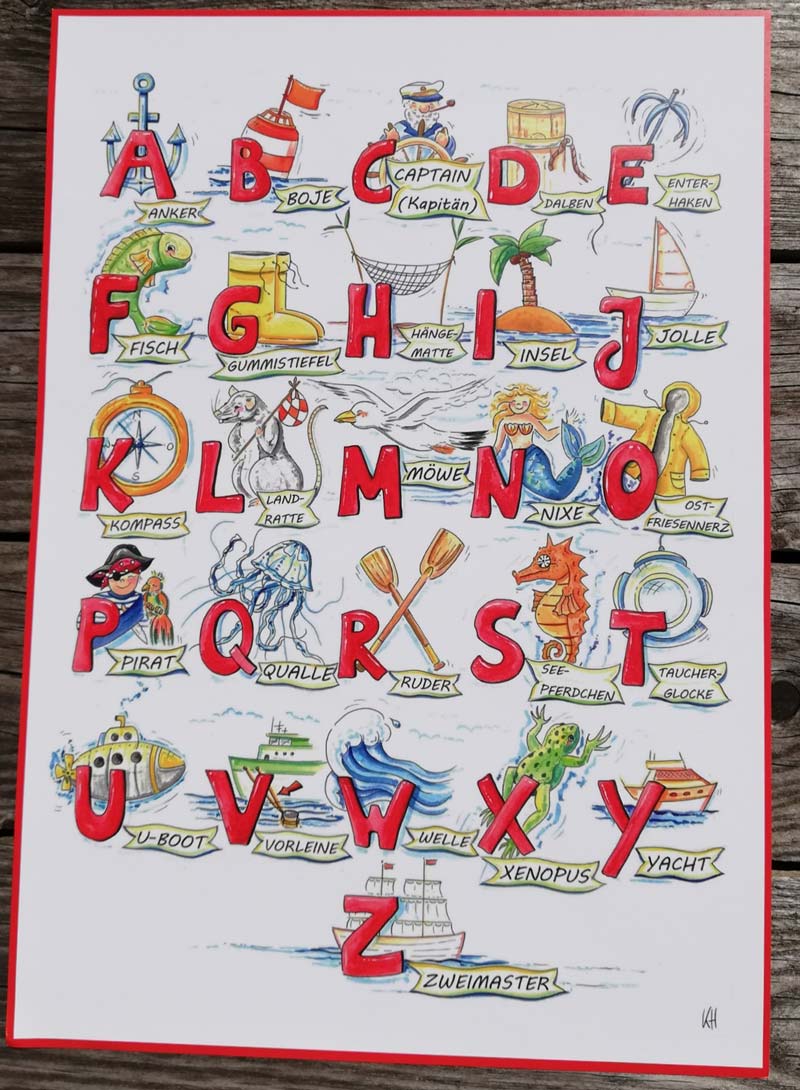 A
ANKER
B
BOJE
C
CAPTAIN
(Kapitän)
D
DALBEN
E
ENTER-
HAKEN
F
FISCH
G
GUMMISTIEFEL
H
HÄNGE-
MATTE
I
INSEL
J
JOLLE
K
N
O
S
KOMPASS
L
LAND-
RATTE
M
MÖWE
N
NIXE
O
OST-
FRIESENNERZ
P
PIRAT
Q
QUALLE
R
RUDER
S
SEE-
PFERDCHEN
T
TAUCHER-
GLOCKE
U
U-BOOT
V
VORLEINE
W
WELLE
X
XENOPUS
Y
YACHT
Z
ZWEIMASTER
KH